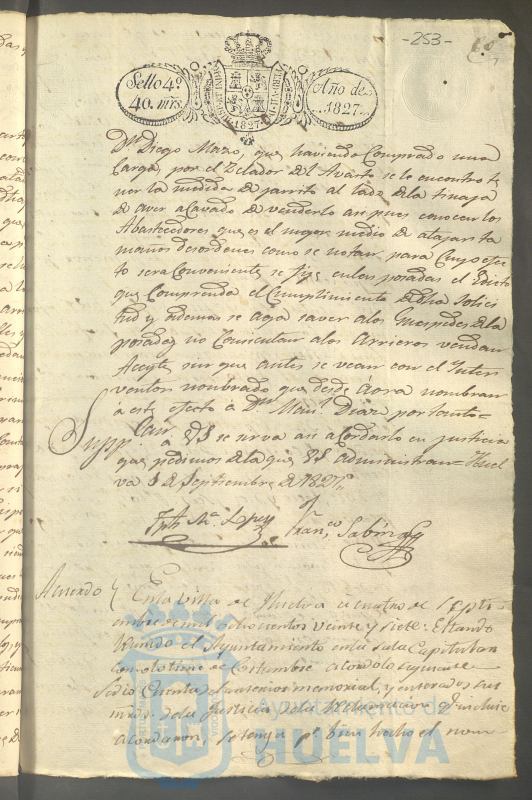 -253-
Sello 4º
40. mrs.
HISPANIAR
1827
Año de
1827.
Dn. Diego Mazo, que haviendo Comprado una
Carga, por el Zelador del Avasto se le encontro te
ner la medida de jarrito al lado de la tinaja
de aver acavado de venderlo asi pues conocer los
Abastecedores que es el mejor medio de atajar ta
maños desordenes como se notan, para cuyo efec
to sera Conveniente se fije en las posadas el Edicto
que Comprenda el Cumplimiento de dha Solici
tud y ademas se aga saver a los Guespedes de la
posadas no Consientan a los Arrieros vendan
Aceyte sin que antes se vean con el Inter
ventor nombrado que desde aora nombran
a este efecto a Dn. Manl. Diaz por tanto
Suppcan a VS se sirva asi acordarlo en justicia
que pedimos de la que VS administran Huel
va 3 de Septiembre de 1827
Lopez
Franco. Sabino
Acuerdo
En la villa de Huelva a cuatro de Septi
embre de mil ochocientos veinte y siete: Estando
reunido el Ayuntamiento en la sala Capitular
como lo tiene de Costumbre acordo lo siguiente
Se dio Cuenta del anterior memorial, y enterados sus
mrds. de la Justicia de la reclamacion q. incluye
acordaron, se tenga pr. bien hecho el nom
Ayuntamiento de
HUELVA